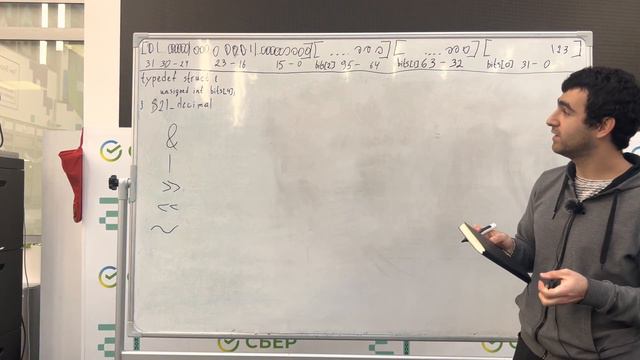 [ .... 000] [ .... 000] [ 123]
31 30-24 23-16 15-0 bits[2] 95-64 bits[1] 63-32 bits[0] 31-0
typedef struct {
unsigned int bits[4];
} S21_decimal
&
|
>>
<<
~
СБЕР